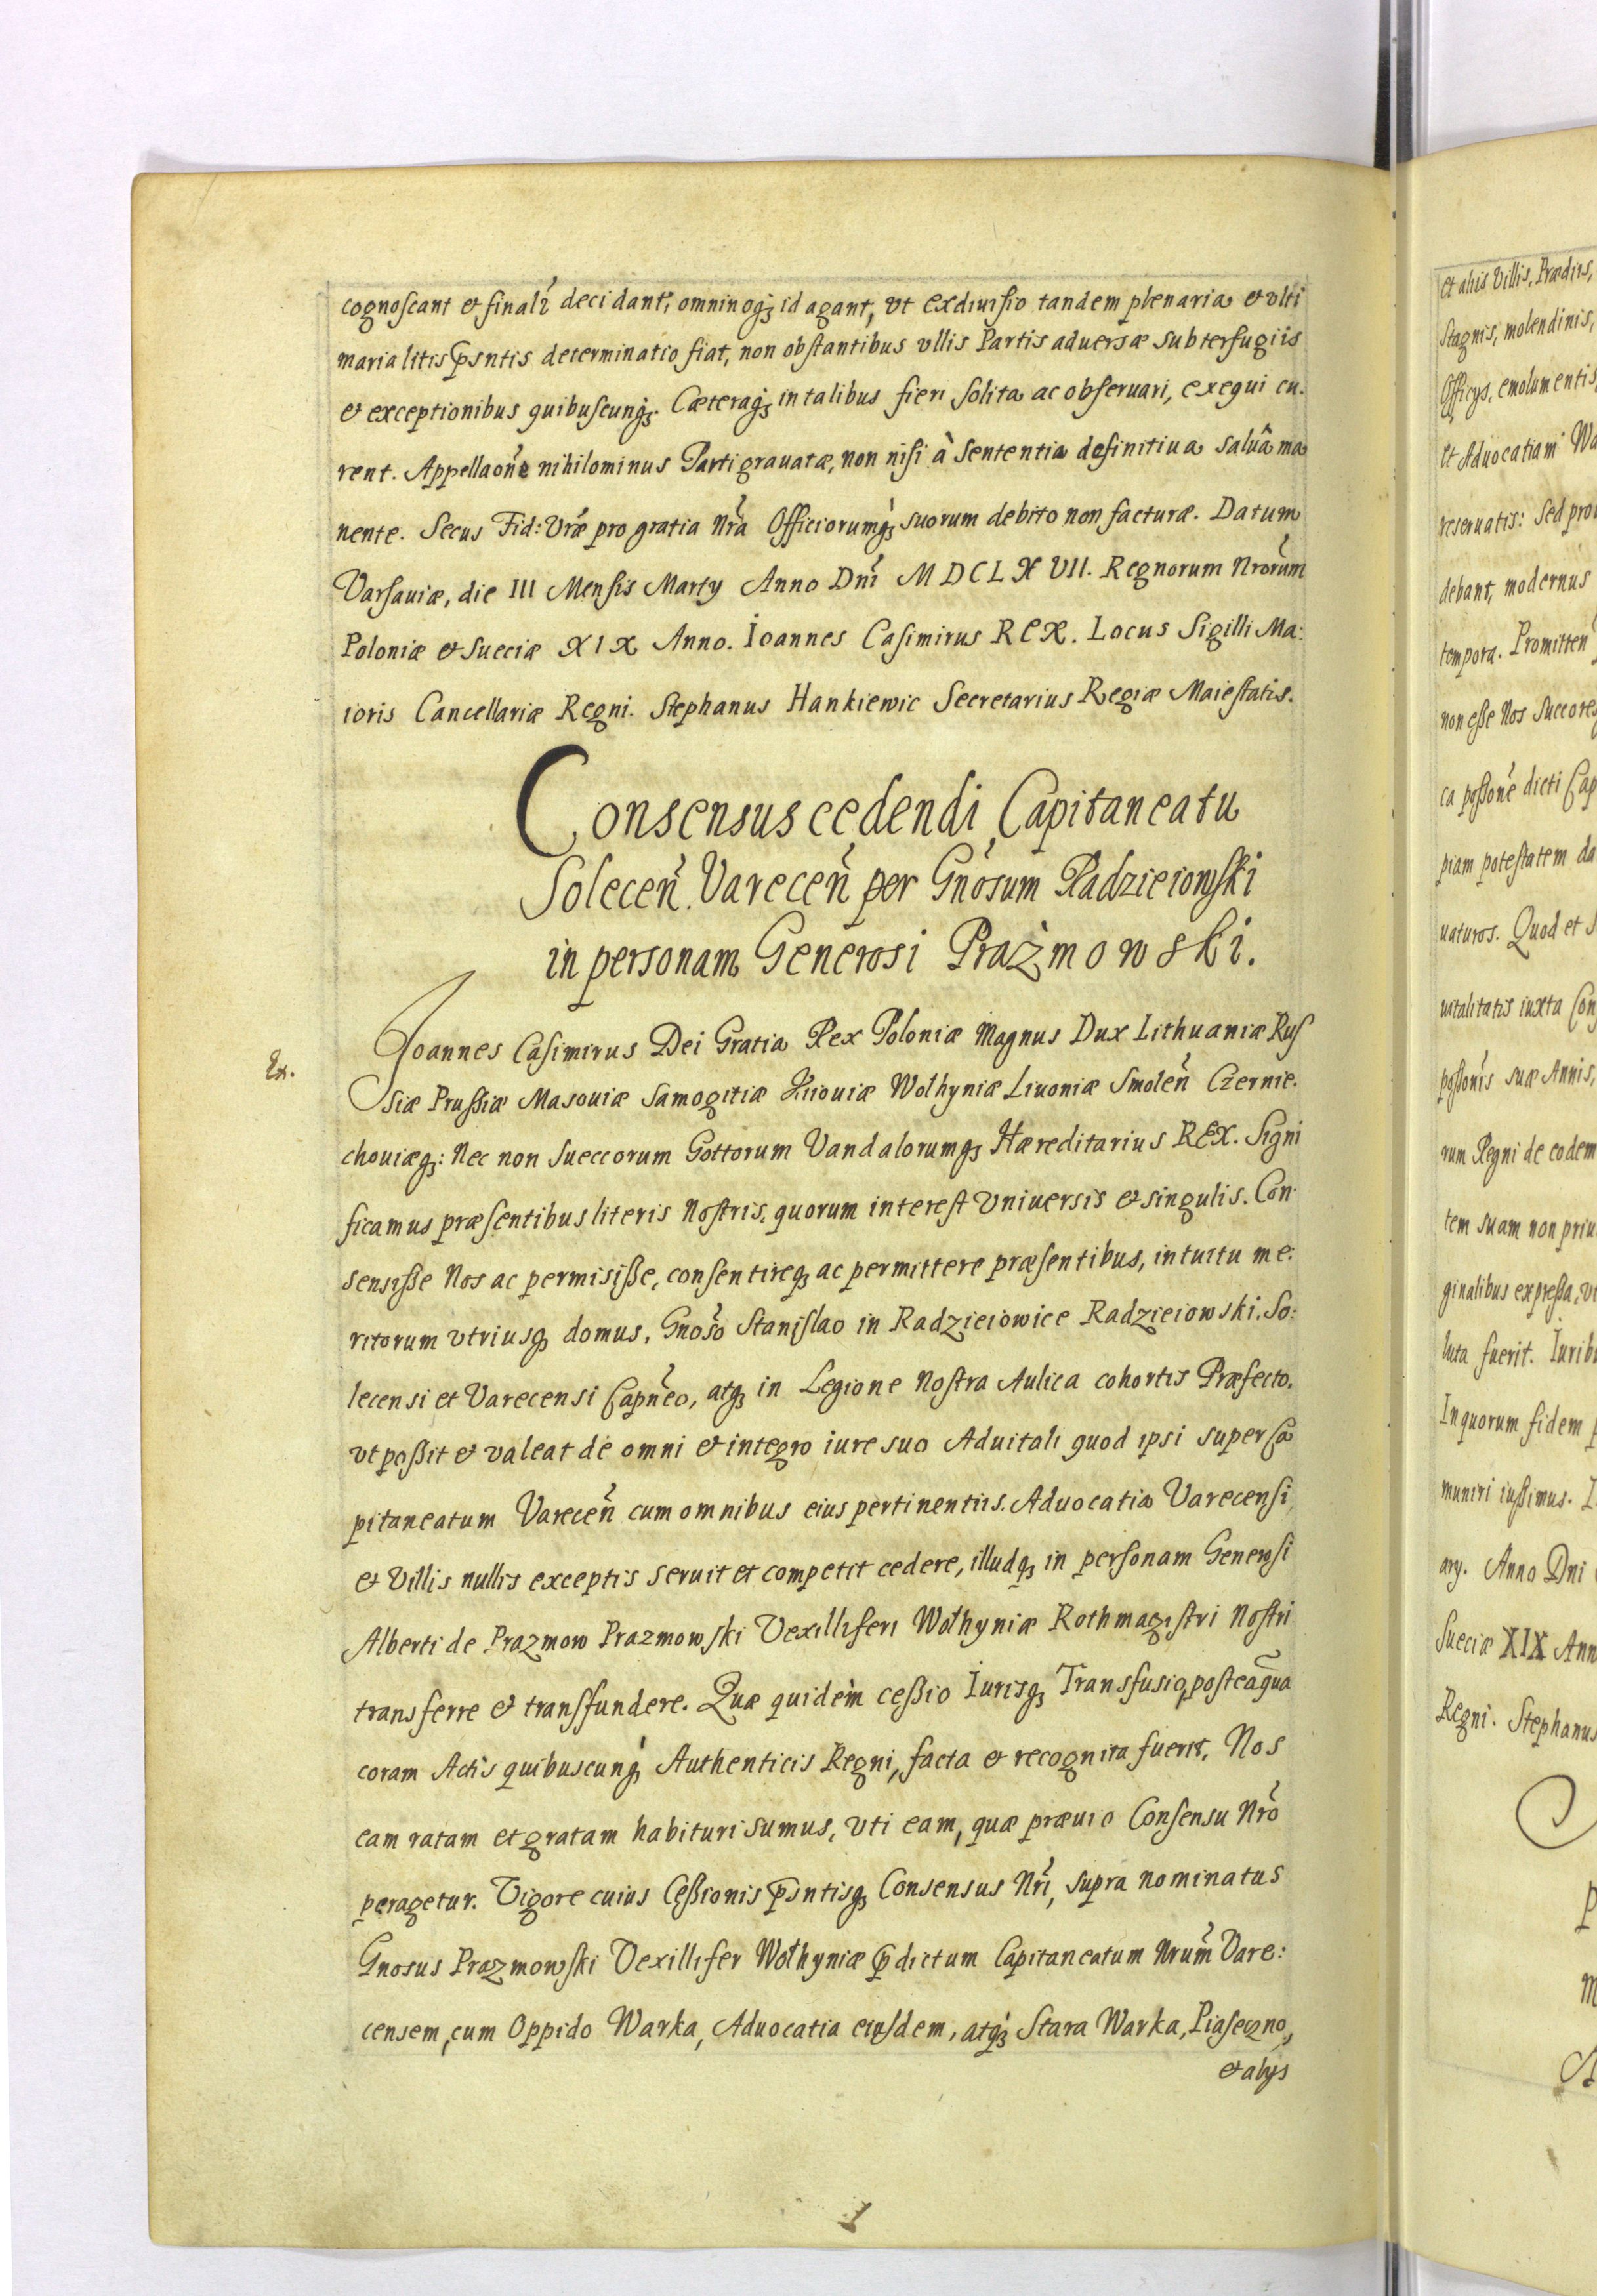 cognoscant et finalr̃ decidant, omninoq; id agant, vt exdiuisio tandem plenaria et vlti
maria litis p̃sntis determinatio fiat, non obstantibus vllis Partis aduersæ subterfugiis
et exceptionibus quibuscunq;. Cæteraq; in talibus fieri solita ac obseruari, exequi cu.
rent. Appellaõne nihilominus Parti grauatæ, non nisi à Sententia definitiua saluâ ma
nente. Secus Fid: Vræ̃ pro gratia Nrã Officiorumq; suorum debito non facturæ. Datum
Varsauiæ, die III Mensis Marty Anno Dnĩ MDCLXVII. Regnorum Nrorum̃
Poloniæ et Sueciæ XIX Anno. Ioannes Casimirus REX. Locus Sigilli Ma:
ioris Cancellariæ Regni. Stephanus Hankiewic Secretarius Regiæ Maiestatis.
Consensus cedendi Capitaneatu
Soleceñ. Vareceñ per Gnõsum Radzieiowski
in personam Generosi Prażmowski.
Ex.
Ioannes Casimirus Dei Gratia Rex Poloniæ Magnus Dux Lithuaniæ Rus
siæ Prussiæ Masouiæ Samogitiæ Kiiouiæ Wołhyniæ Liuoniæ Smoleñ Czernie.
chouiæq;: Nec non Sueccorum Gottorum Vandalorumq; Hæreditarius REX. Signi
ficamus præsentibus literis Nostris, quorum interest Vniuersis et singulis. Con
sensisse Nos ac permisisse, consentireq; ac permittere præsentibus, intuitu me:
ritorum vtriusq; domus, Gnosõ Stanislao in Radzieiowice Radzieiowski. So:
lecensi et Varecensi Capnẽo, atq; in Legione Nostra Aulica cohortis Præfecto.
vt possit et valeat de omni et integro iure suo Aduitali quod ipsi super Ca
pitaneatum Vareceñ cum omnibus eius pertinentiis. Aduocatia Varecensi,
et Villis nullis exceptis seruit et competit cedere, illudq; in personam Generosi
Alberti de Prazmow Prazmowski Vexilliferi Wołhyniæ Rothmagistri Nostri
transferre et transfundere. Quæ quidem cessio Iurisq; Transfusio, posteaqũa
coram Actis quibuscunq; Authenticis Regni, facta et recognita fuerit. Nos
eam ratam et gratam habituri sumus, vti eam, quæ præuio Consensu Nrõ
peragetur. Vigore cuius Cessionis p̃sntisq; Consensus Nrĩ, supra nominatus
Gnosus Prazmowski Vexillifer Wołhyniæ p̃dictum Capitaneatum Nrum̃ Vare:
censem, cum Oppido Warka, Aduocatia eiusdem, atq; Stara Warka, Piaseczno,
et alys
et aliis Villis, Prædiis,
Stagnis, molendinis,
Officys, emolumentis
et Aduocatiam Wa
reseruatis: Sed pro
debant, modernus
tempora. Promitten
non esse Nos Succores
ca possonẽ dicti Cap
piam potestatem da
uaturos. Quod et S
uitalitatis iuxta Con
possonĩs suæ Annis,
rum Regni de eodem
tem suam non priu
ginalibus expressa, vi
luta fuerit. Iuribu
In quorum fidem p
muniri iussimus. I
ary. Anno Dni
Sueciæ XIX Ann
Regni. Stephanus